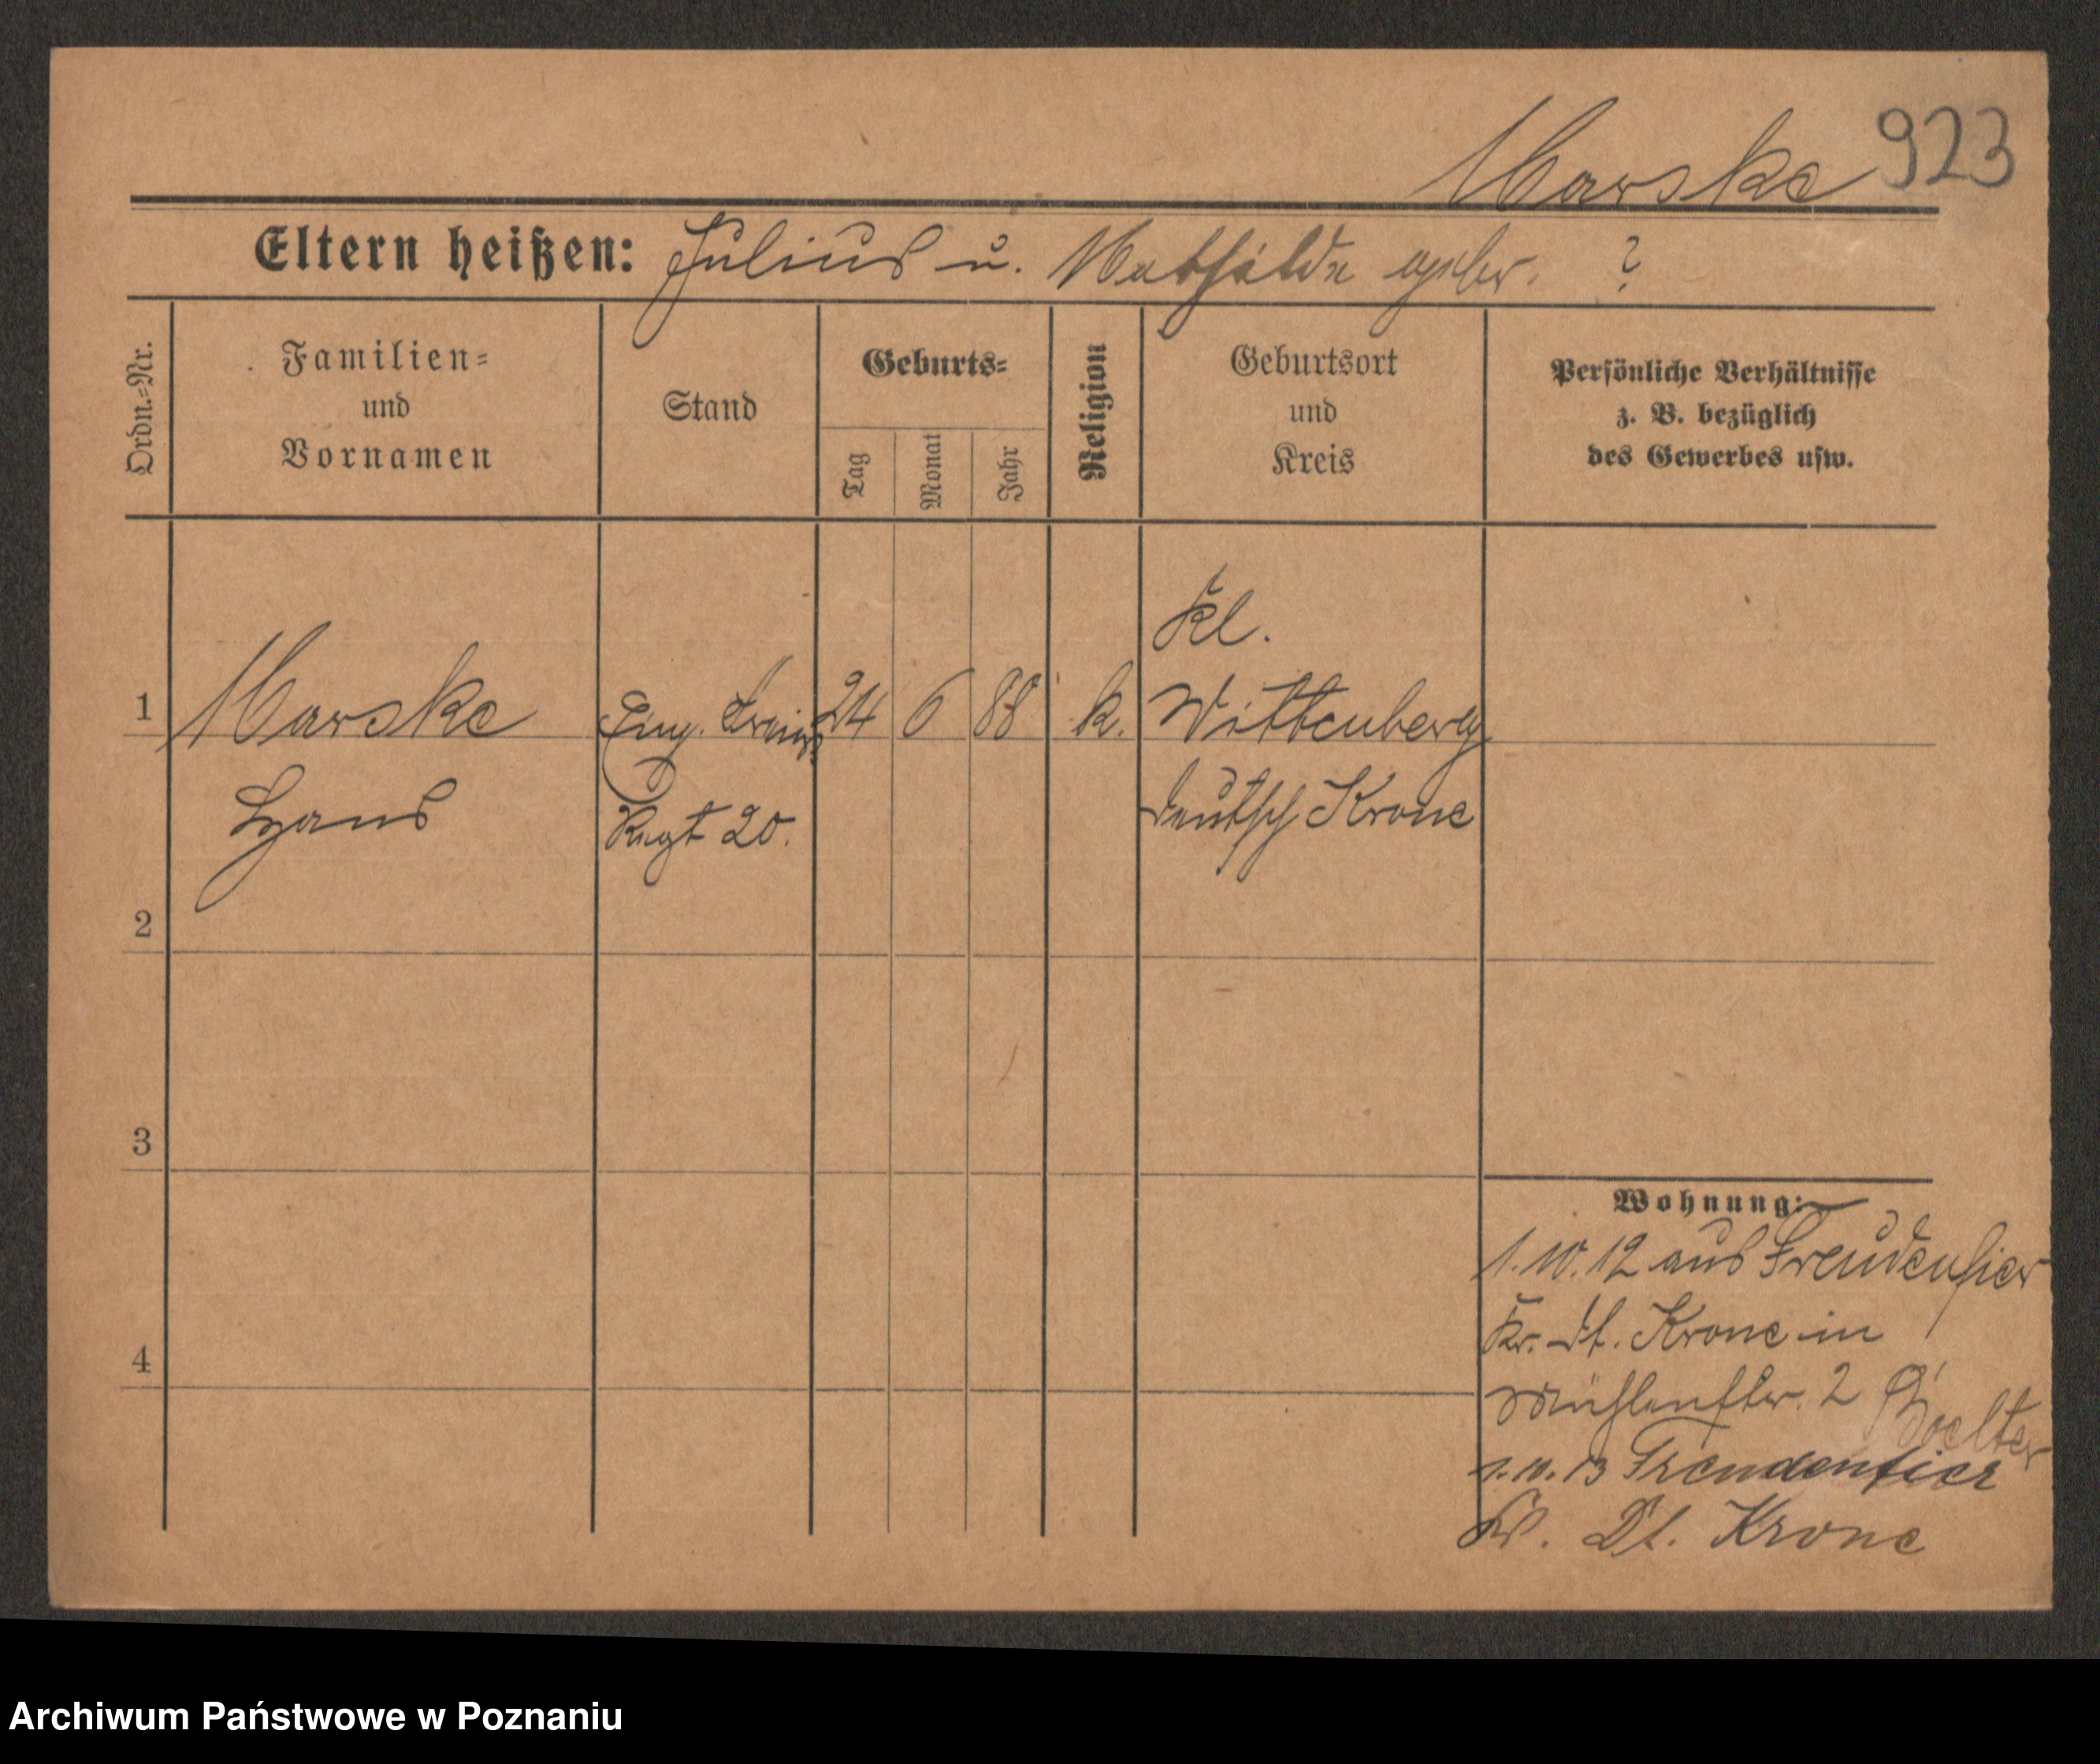 Marske 923
Eltern heißen: Julius u. Mathilde geber. ?
Ordn.-Nr.
Familien-
und
Vornamen
Stand
Geburts-
Tag
Monat
Jahr
Religion
Geburtsort
und
Kreis
Persönliche Verhältnisse
z. B. bezüglich
des Gewerbes usw.
Kl.
1 Marske 24 6 88 k. Wittenberg
Hans Regt 20. Deutsch Krone
2
3
4
Wohnung:
1.10.12 aus Freudenfier
Kr. Dt. Krone in
Mühlenstr. 2
1.10.13 Freudenfier
Kr. Dt. Krone
Archiwum Państwowe w Poznaniu